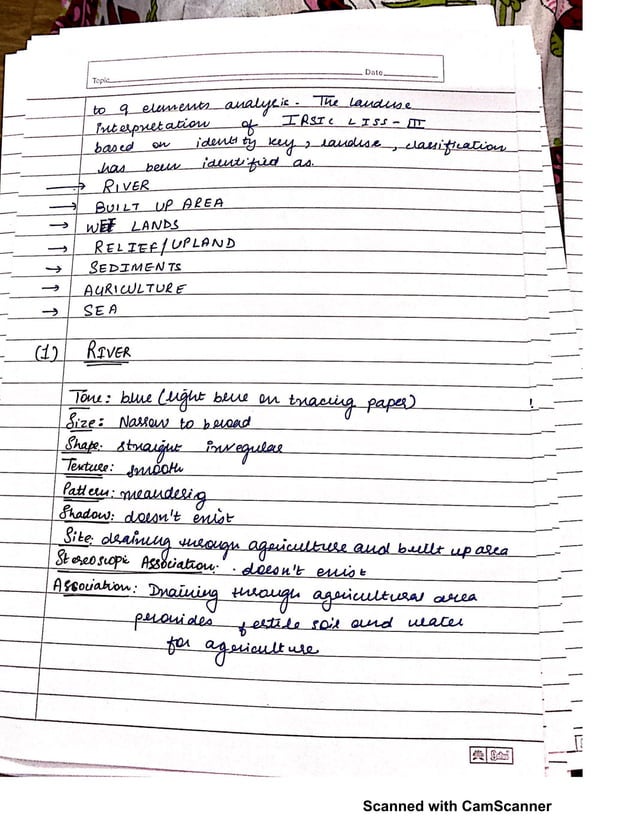 Topic
Date
to 9 elements analysis. The landuse
interpretation of IRSIC LISS-III
based on identity key, landuse, classification
has been identified as.
→ RIVER
→ BUILT UP AREA
→ WET LANDS
→ RELIEF/UPLAND
→ SEDIMENTS
→ AGRICULTURE
→ SEA
(1) RIVER
Tone: blue (light blue on tracing paper)
Size: Narrow to broad
Shape: straight irregular
Texture: smooth
Pattern: meandering
Shadow: doesn't exist
Site: draining through agriculture and built up area
Stereoscopic Association: doesn't exist
Association: Draining through agricultural area
provides fertile soil and water
for agriculture
Scanned with CamScanner